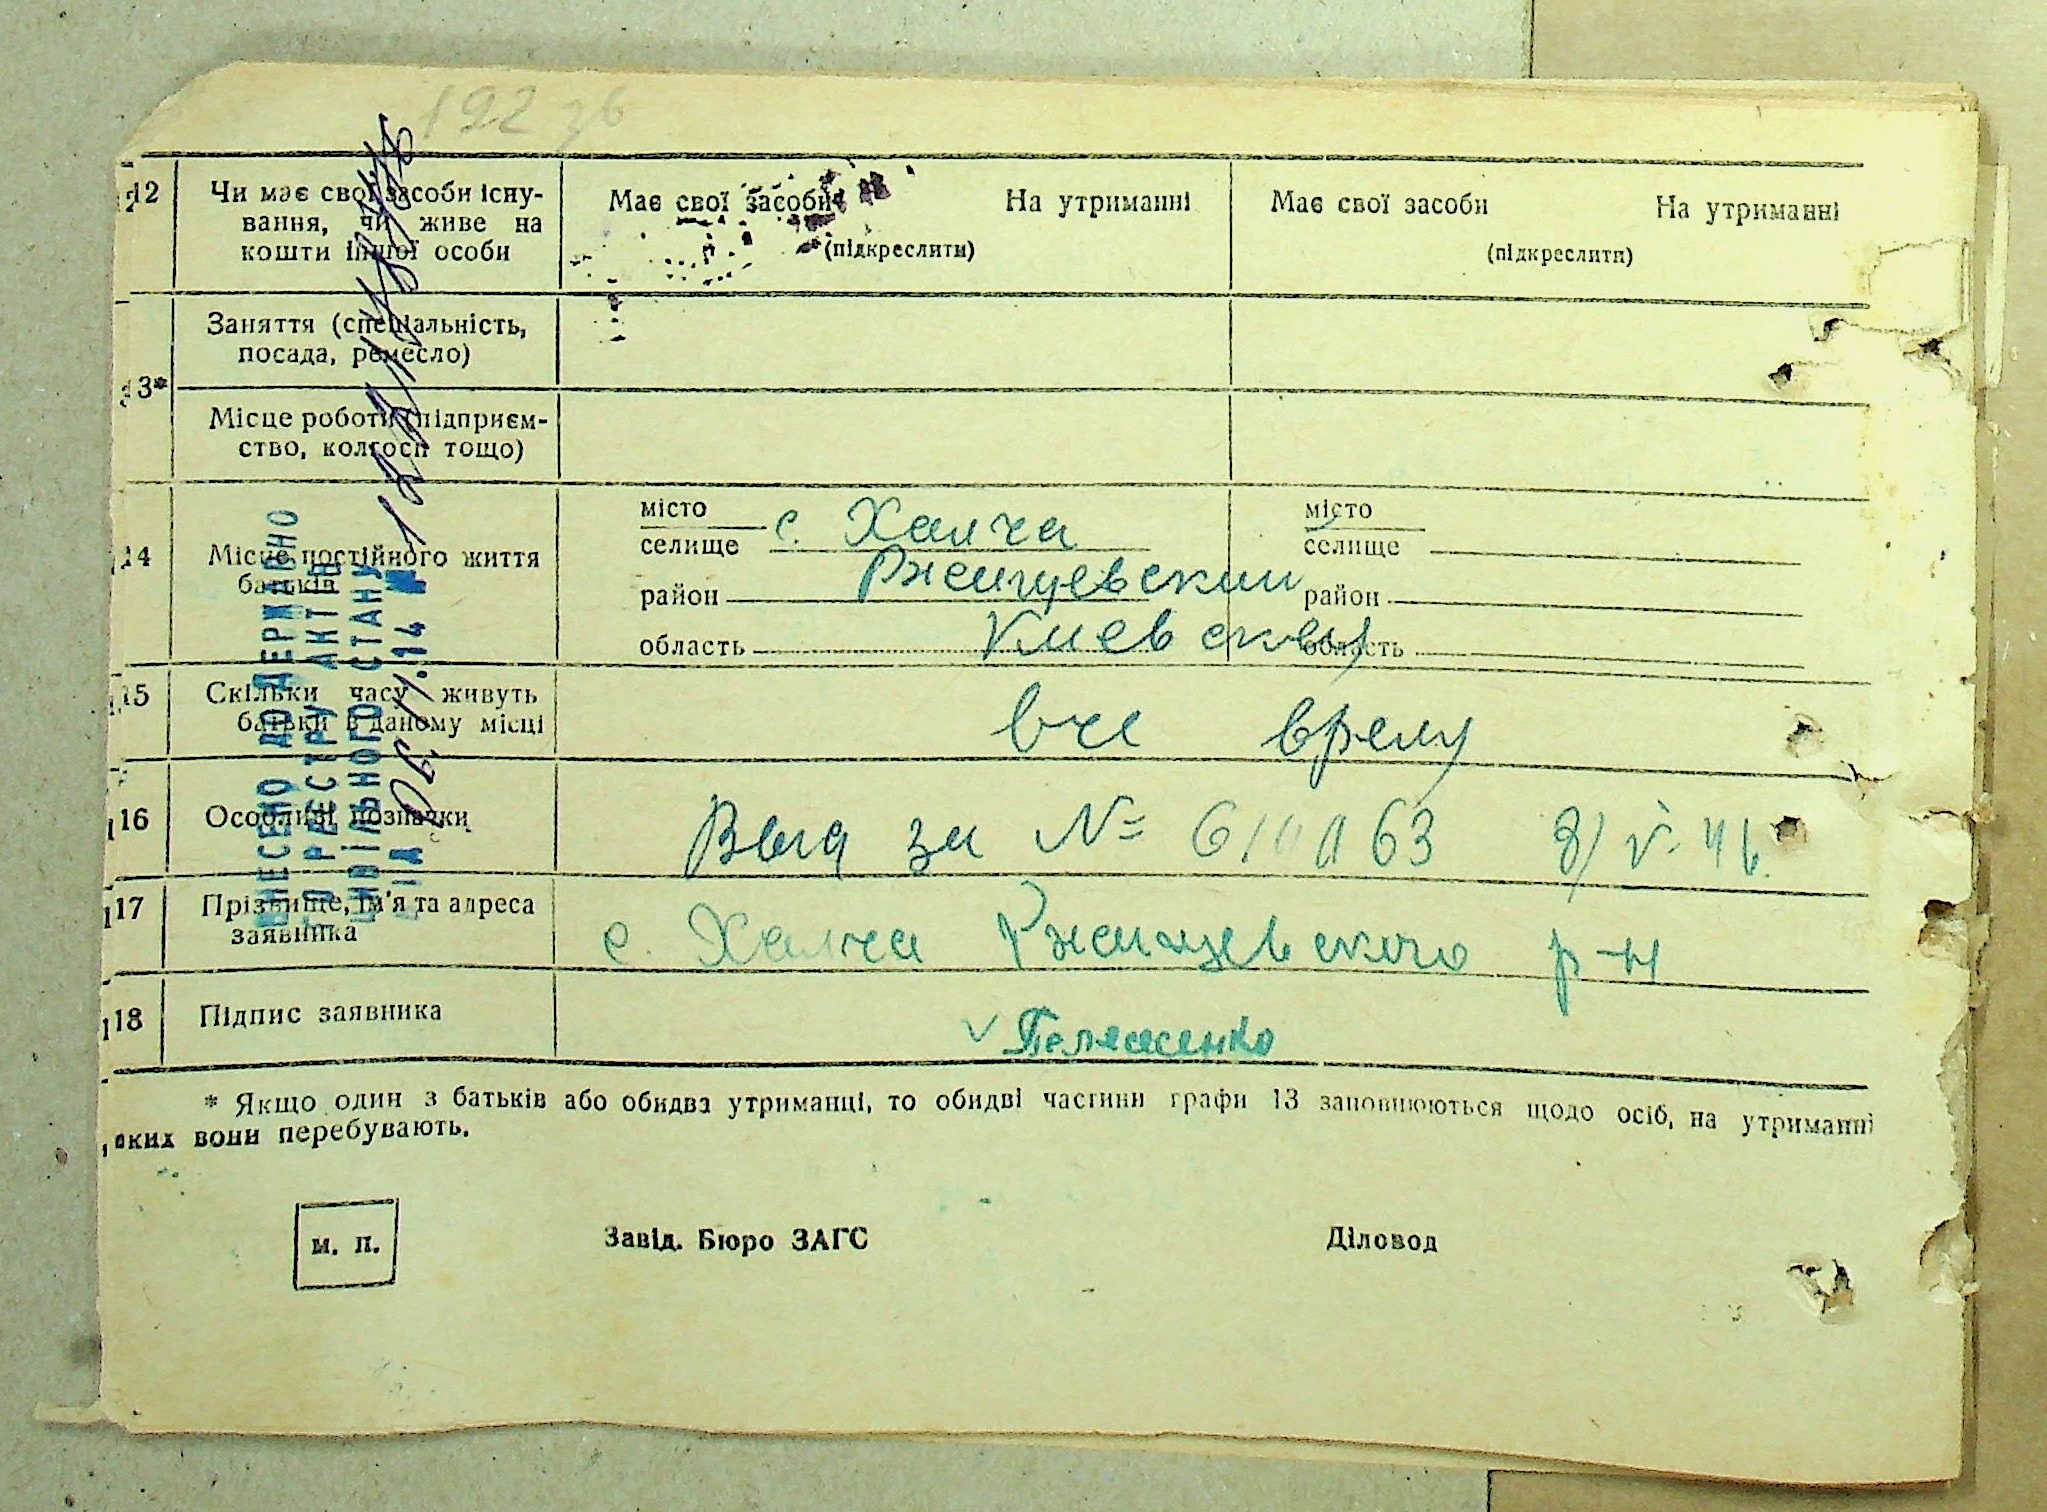 192 зв
12 Чи має свої засоби існу- Має свої засоби На утриманні Має свої засоби На утриманні
вання, чи живе на (підкреслити) (підкреслити)
кошти іншої особи
13* Заняття (спеціальність,
посада, ремесло)
Місце роботи (підприєм-
ство, колгосп тощо)
14 Місце постійного життя
батьків
місто с. Халча місто
селище селище
район Ржищевский район
область Киевской область
15 Скільки часу живуть
батьки в даному місці
все время
16 Особливі позначки
Выд за № 63 8/V-46
17 Прізвище, ім'я та адреса
заявника
с. Халча Ржищевского р-н
18 Підпис заявника
* Якщо один з батьків або обидва утриманці, то обидві частини графи 13 заповнюються щодо осіб, на утриманні
яких вони перебувають.
М. П. Завід. Бюро ЗАГС Діловод
ВНЕСЕНО ДО ДЕРЖАВНО
ГО РЕЄСТРУ АКТІВ
ЦИВІЛЬНОГО СТАНУ
06.11.14